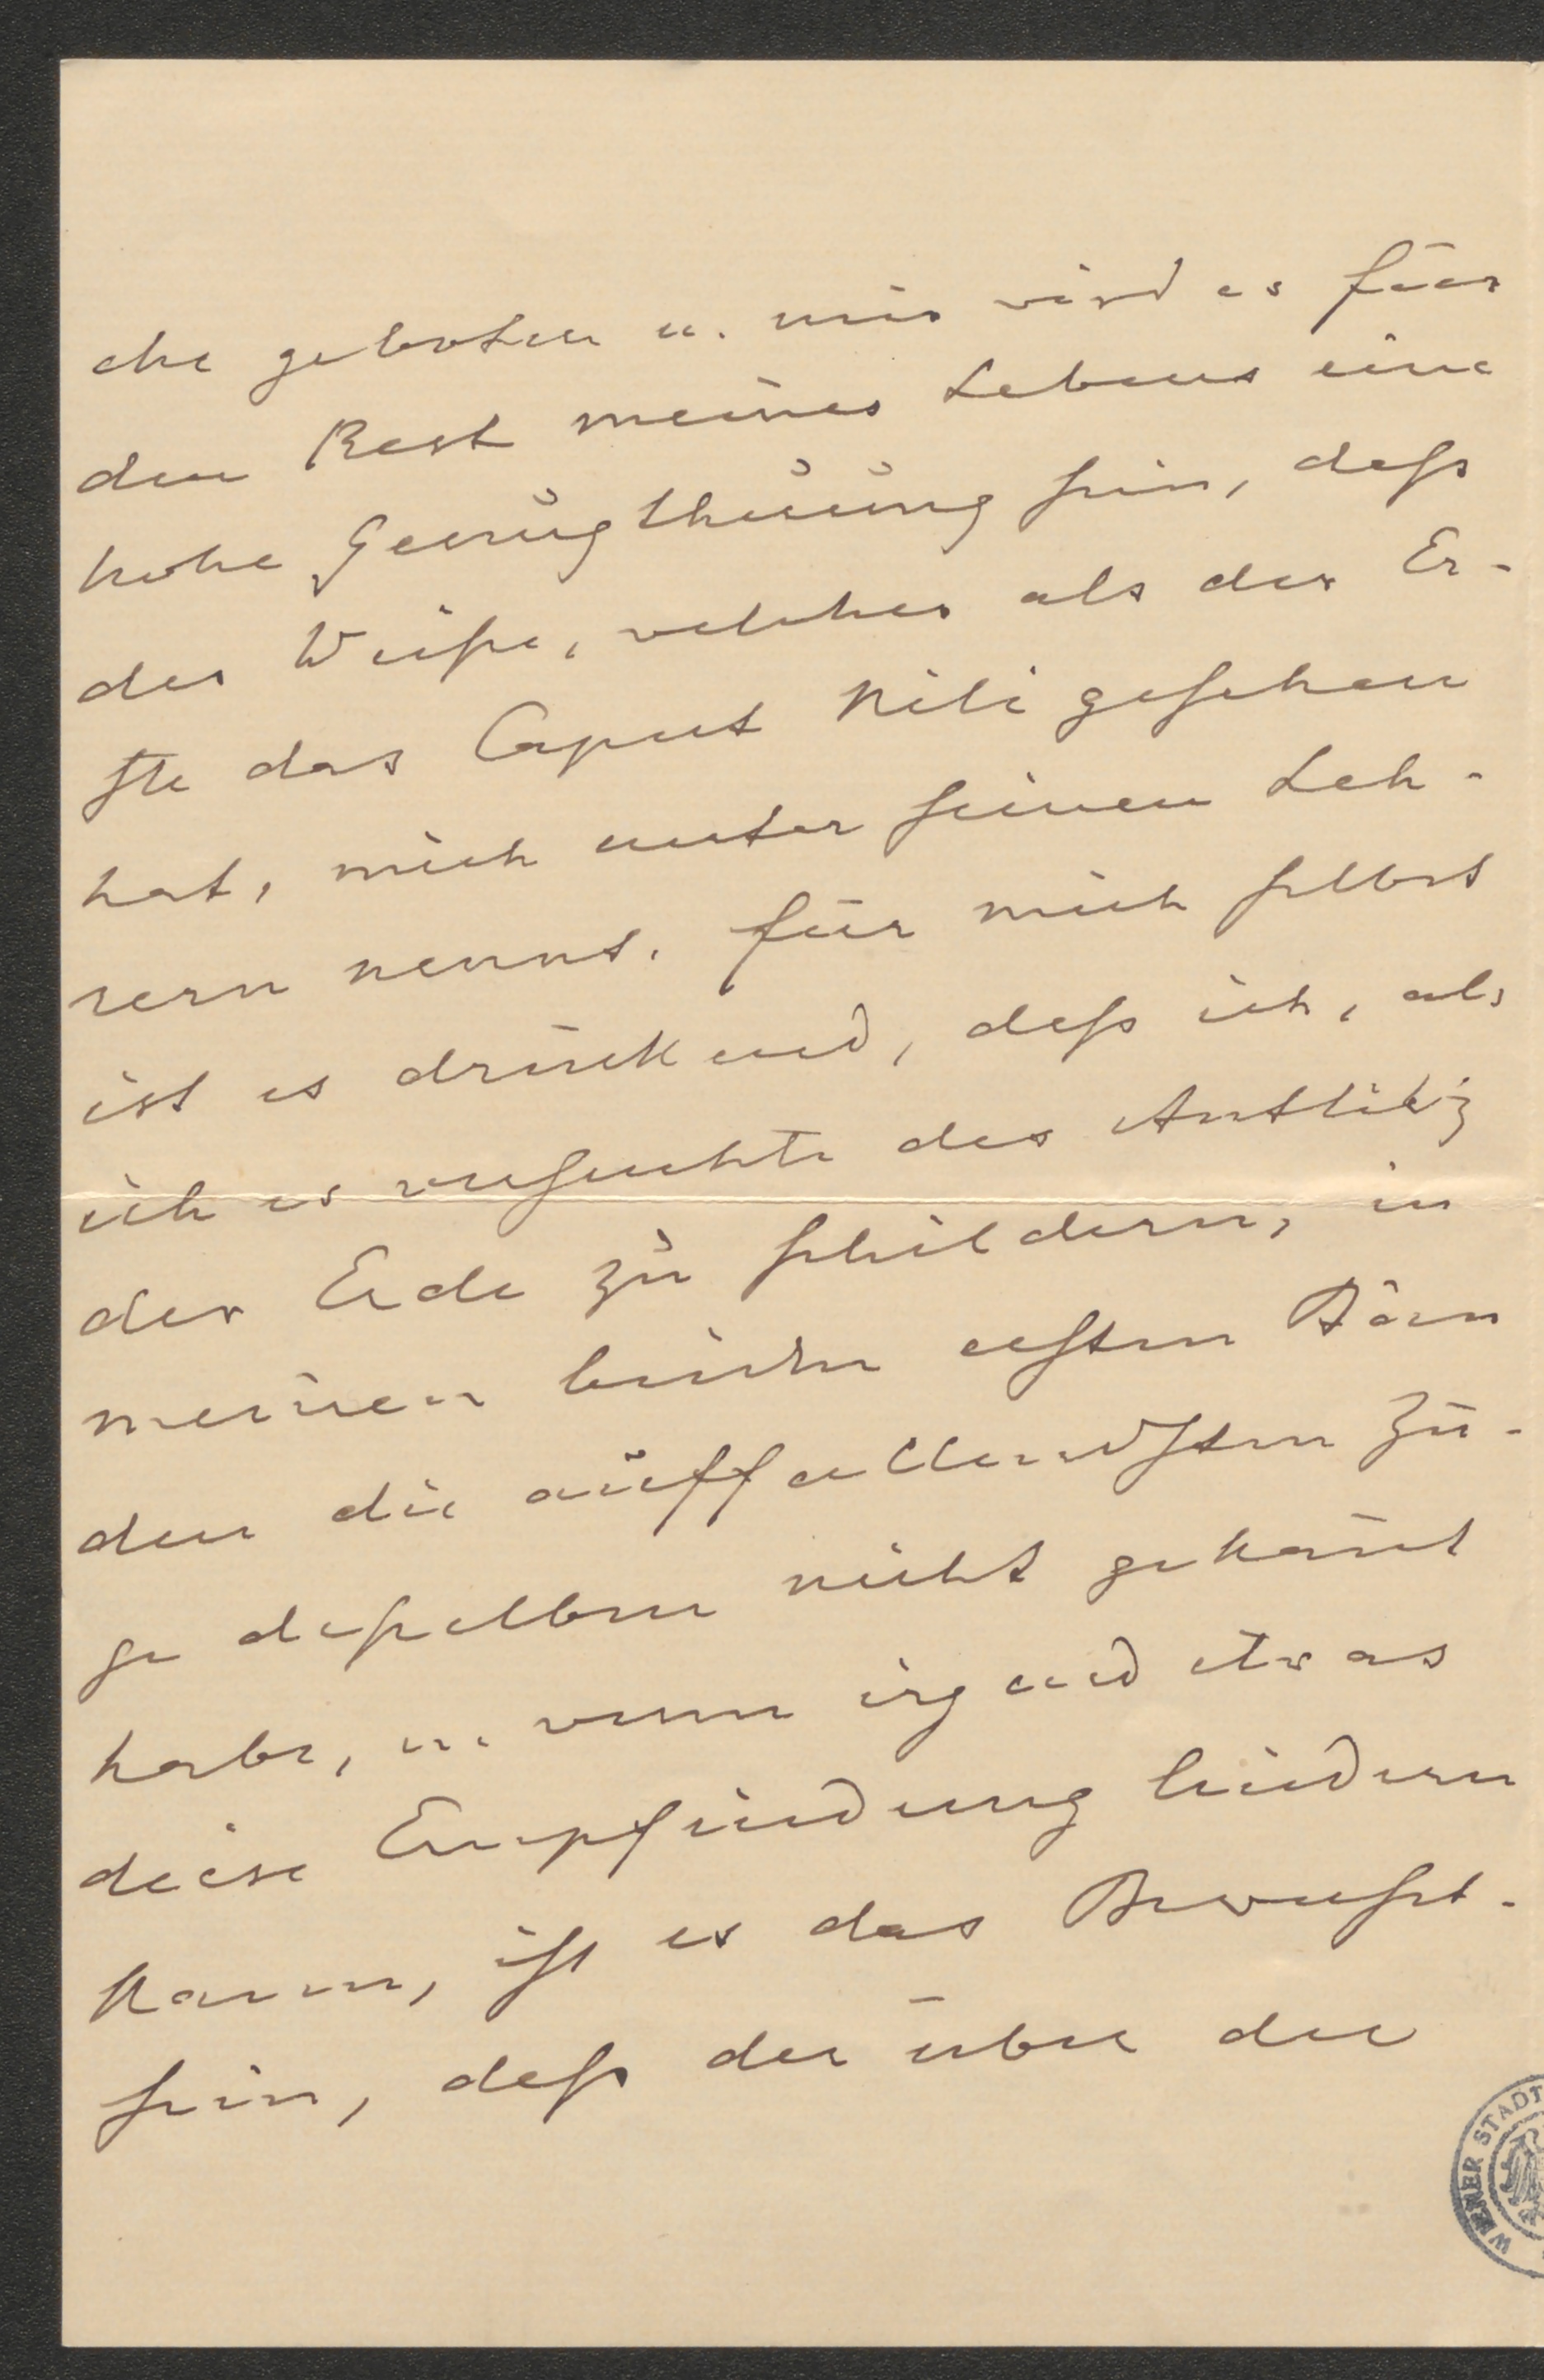 che geboten u. mir wird es für
den Rest meines Lebens eine
hohe Genugthuung sein, daß
der Weiße, welcher als der Er-
ste das Caput Nili gesehen
hat, mich unter seinen Leh-
rern nennt. Für mich selbst
ist es drückend, daß ich, als
ich es versuchte das Antlitz
der Erde zu schildern, in
meinen beiden ersten Bän
den die auffallendsten Zü-
ge desselben nicht gekannt
habe, u. wenn irgend etwas
diese Empfindung lindern
kann, ist es das Bewußt-
sein, daß der über die
WIENER STADT